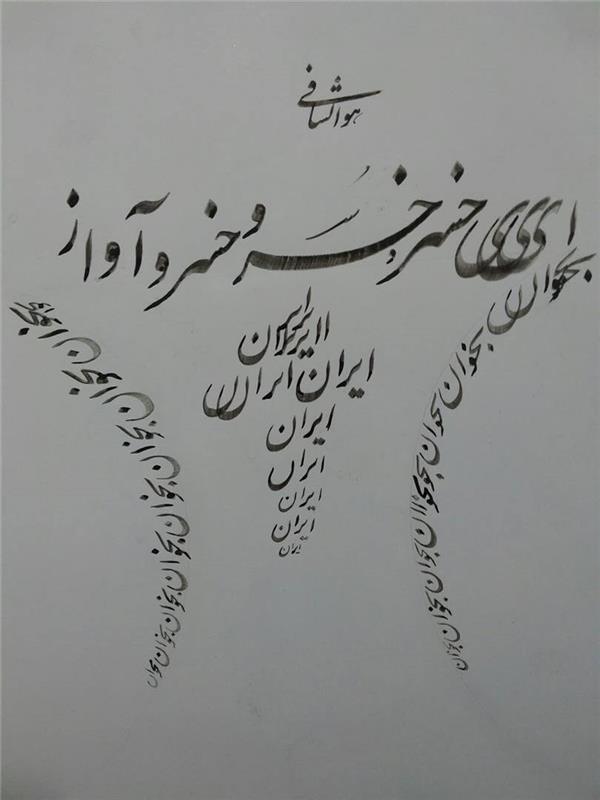 هوالشافی
ای ی ی خسر خسرو خسرو آواز
ایران
ایران
ایران ایران
ایران
ایران
ایران
ایران
ایران
بخوان بخوان بخوان بخوان بخوان بخوان بخوان بخوان
بخوان بخوان بخوان بخوان بخوان بخوان بخوان بخوان